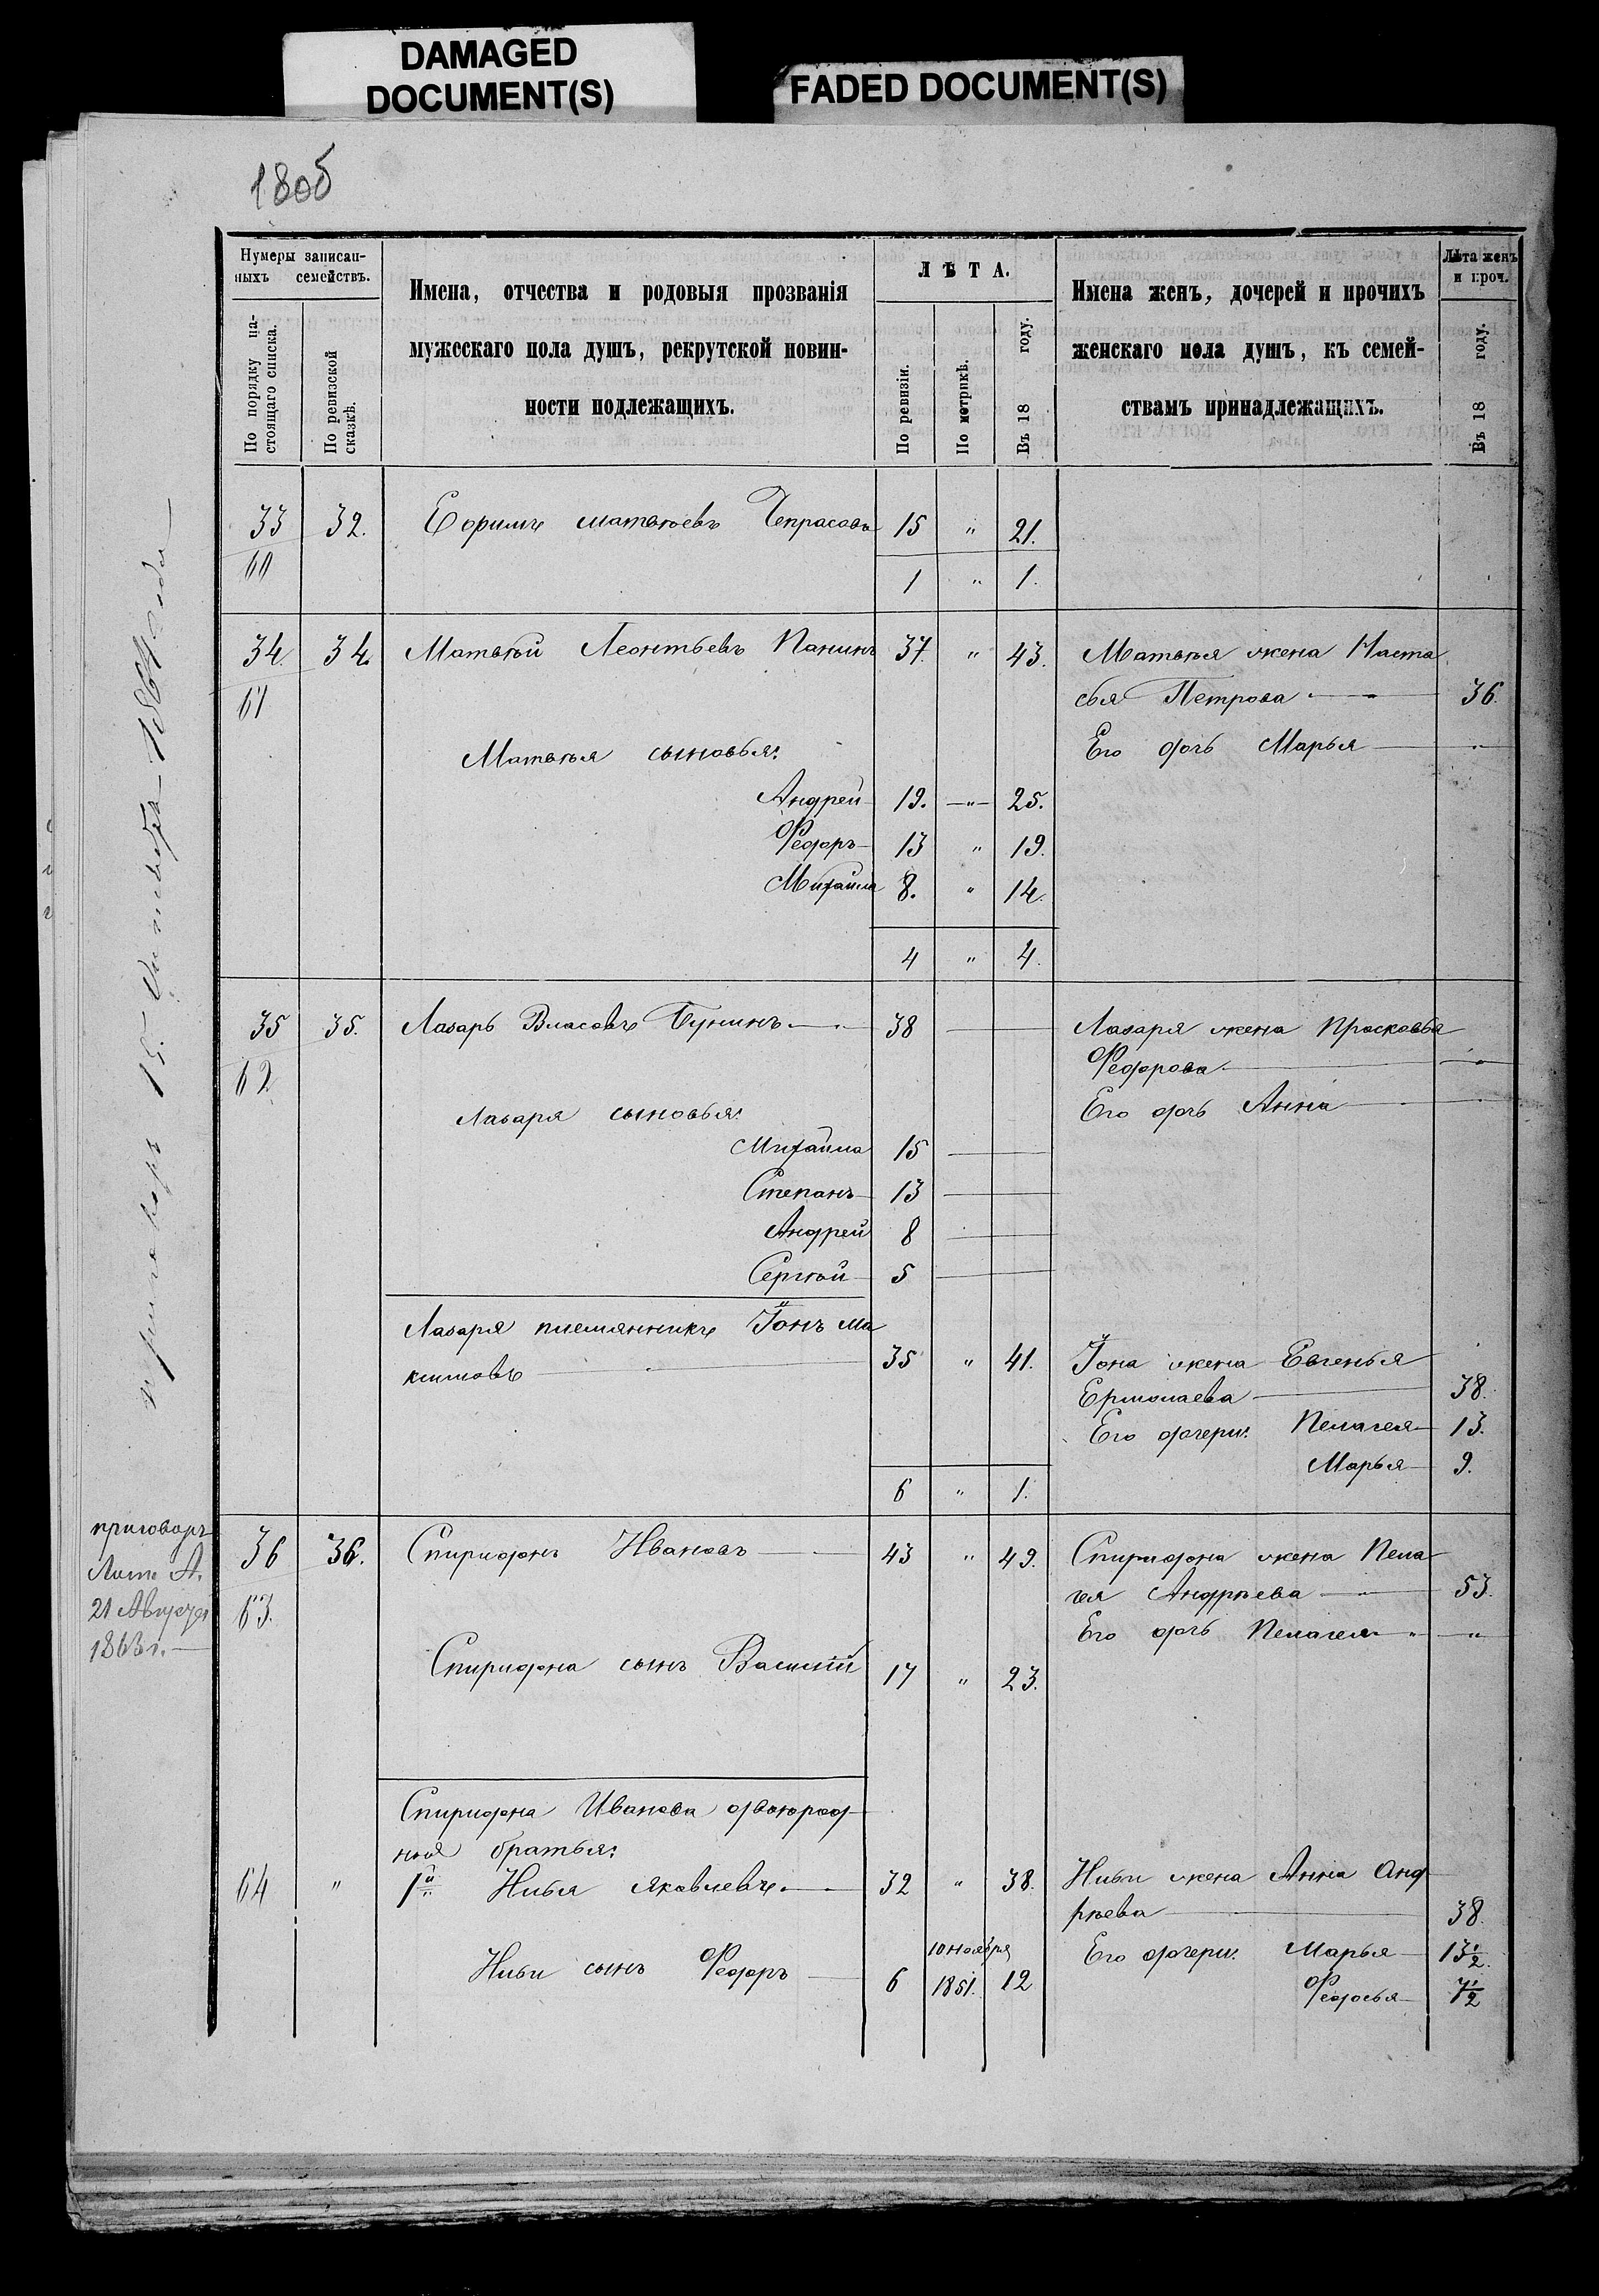 DAMAGED
DOCUMENT(S)
FADED DOCUMENT(S)
180об
Нумеры записан-
ныхъ семействъ.
По порядку на-
стоящаго списка.
По ревизской
сказкѣ.
Имена, отчества и родовыя прозванія
мужескаго пола душъ, рекрутской повин-
ности подлежащихъ.
ЛѢТА.
По ревизіи.
По метрикѣ.
Въ 18 году.
Имена женъ, дочерей и прочихъ
женскаго пола душъ, къ семей-
ствамъ принадлежащихъ.
Лѣта женъ
и проч.
Въ 18 году.
33 32. Ефимъ Матвѣевъ Чепрасовъ 15 " 21.
60
1 " 1.
34. 34. Матвѣй Леонтьевъ Панинъ 37. " 43. Матвѣя жена Наста
61 сья Петрова 36.
Матвѣя сыновья: Его дочь Марья "
Андрей 19. " 25.
Федоръ 13 " 19.
Михайла 8. " 14.
4 " 4.
35 35. Лазарь Власовъ Бунинъ 38 Лазаря жена Прасковья
62 Федорова "
Лазаря сыновья: Его дочь Анна
Михайла 15
Степанъ 13
Андрей 8
Сергѣй 5
Лазаря племянникъ Іонъ Ма
климовъ 35 " 41. Іона жена Евгенья
Ермолаева 38.
Его дочери: Пелагея 13.
Марья 9.
6 " 1.
приговоръ
Лит. А.
21 Августа
1863 г.
36 36. Спиридонъ Ивановъ 43 " 49. Спиридона жена Пела
63. гея Андрѣева 53.
Его дочь Пелагея " "
Спиридона сынъ Василій 17 " 23.
Спиридона Иванова двоюрод
ныя братья:
64 " 1й Илья Яковлевъ 32 " 38. Ильи жена Анна Анд
рѣева 38.
Ильи сынъ Федоръ 6 10 ноября 1851. 12 Его дочери: Марья 13½.
Федосья 7½
приговоръ 15 1864 года